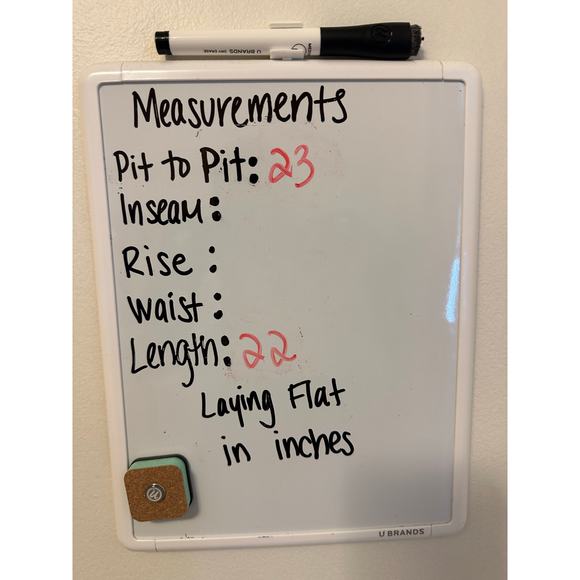 U BRANDS DRY ERASE
Measurements
Pit to Pit: 23
Inseam:
Rise:
Waist:
Length: 22
Laying Flat
in inches
U BRANDS